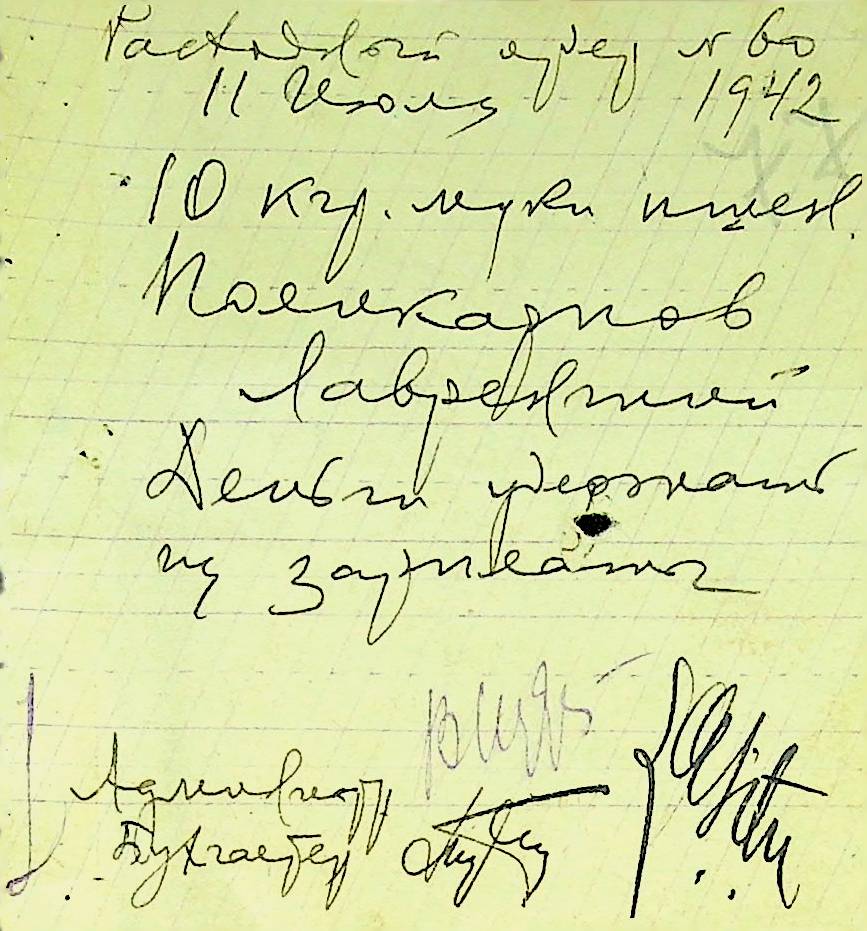 Расходный ордер № 60
11 Июля 1942
10 кгр. муки пшен.
Поликарпов
Лаврентий
Деньги удержать
из зарплаты
Администр
Бухгалтер